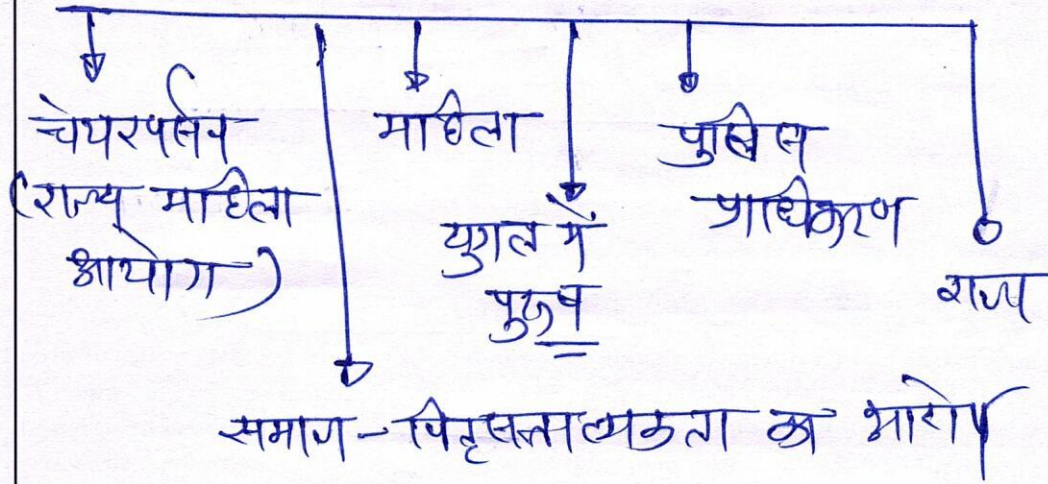 चेयरपर्सन
(राज्य महिला
आयोग)
महिला
युगल में
पुरुष
पुलिस
प्राधिकरण
राज्य
समाज - पितृसत्तात्मकता का आरोप